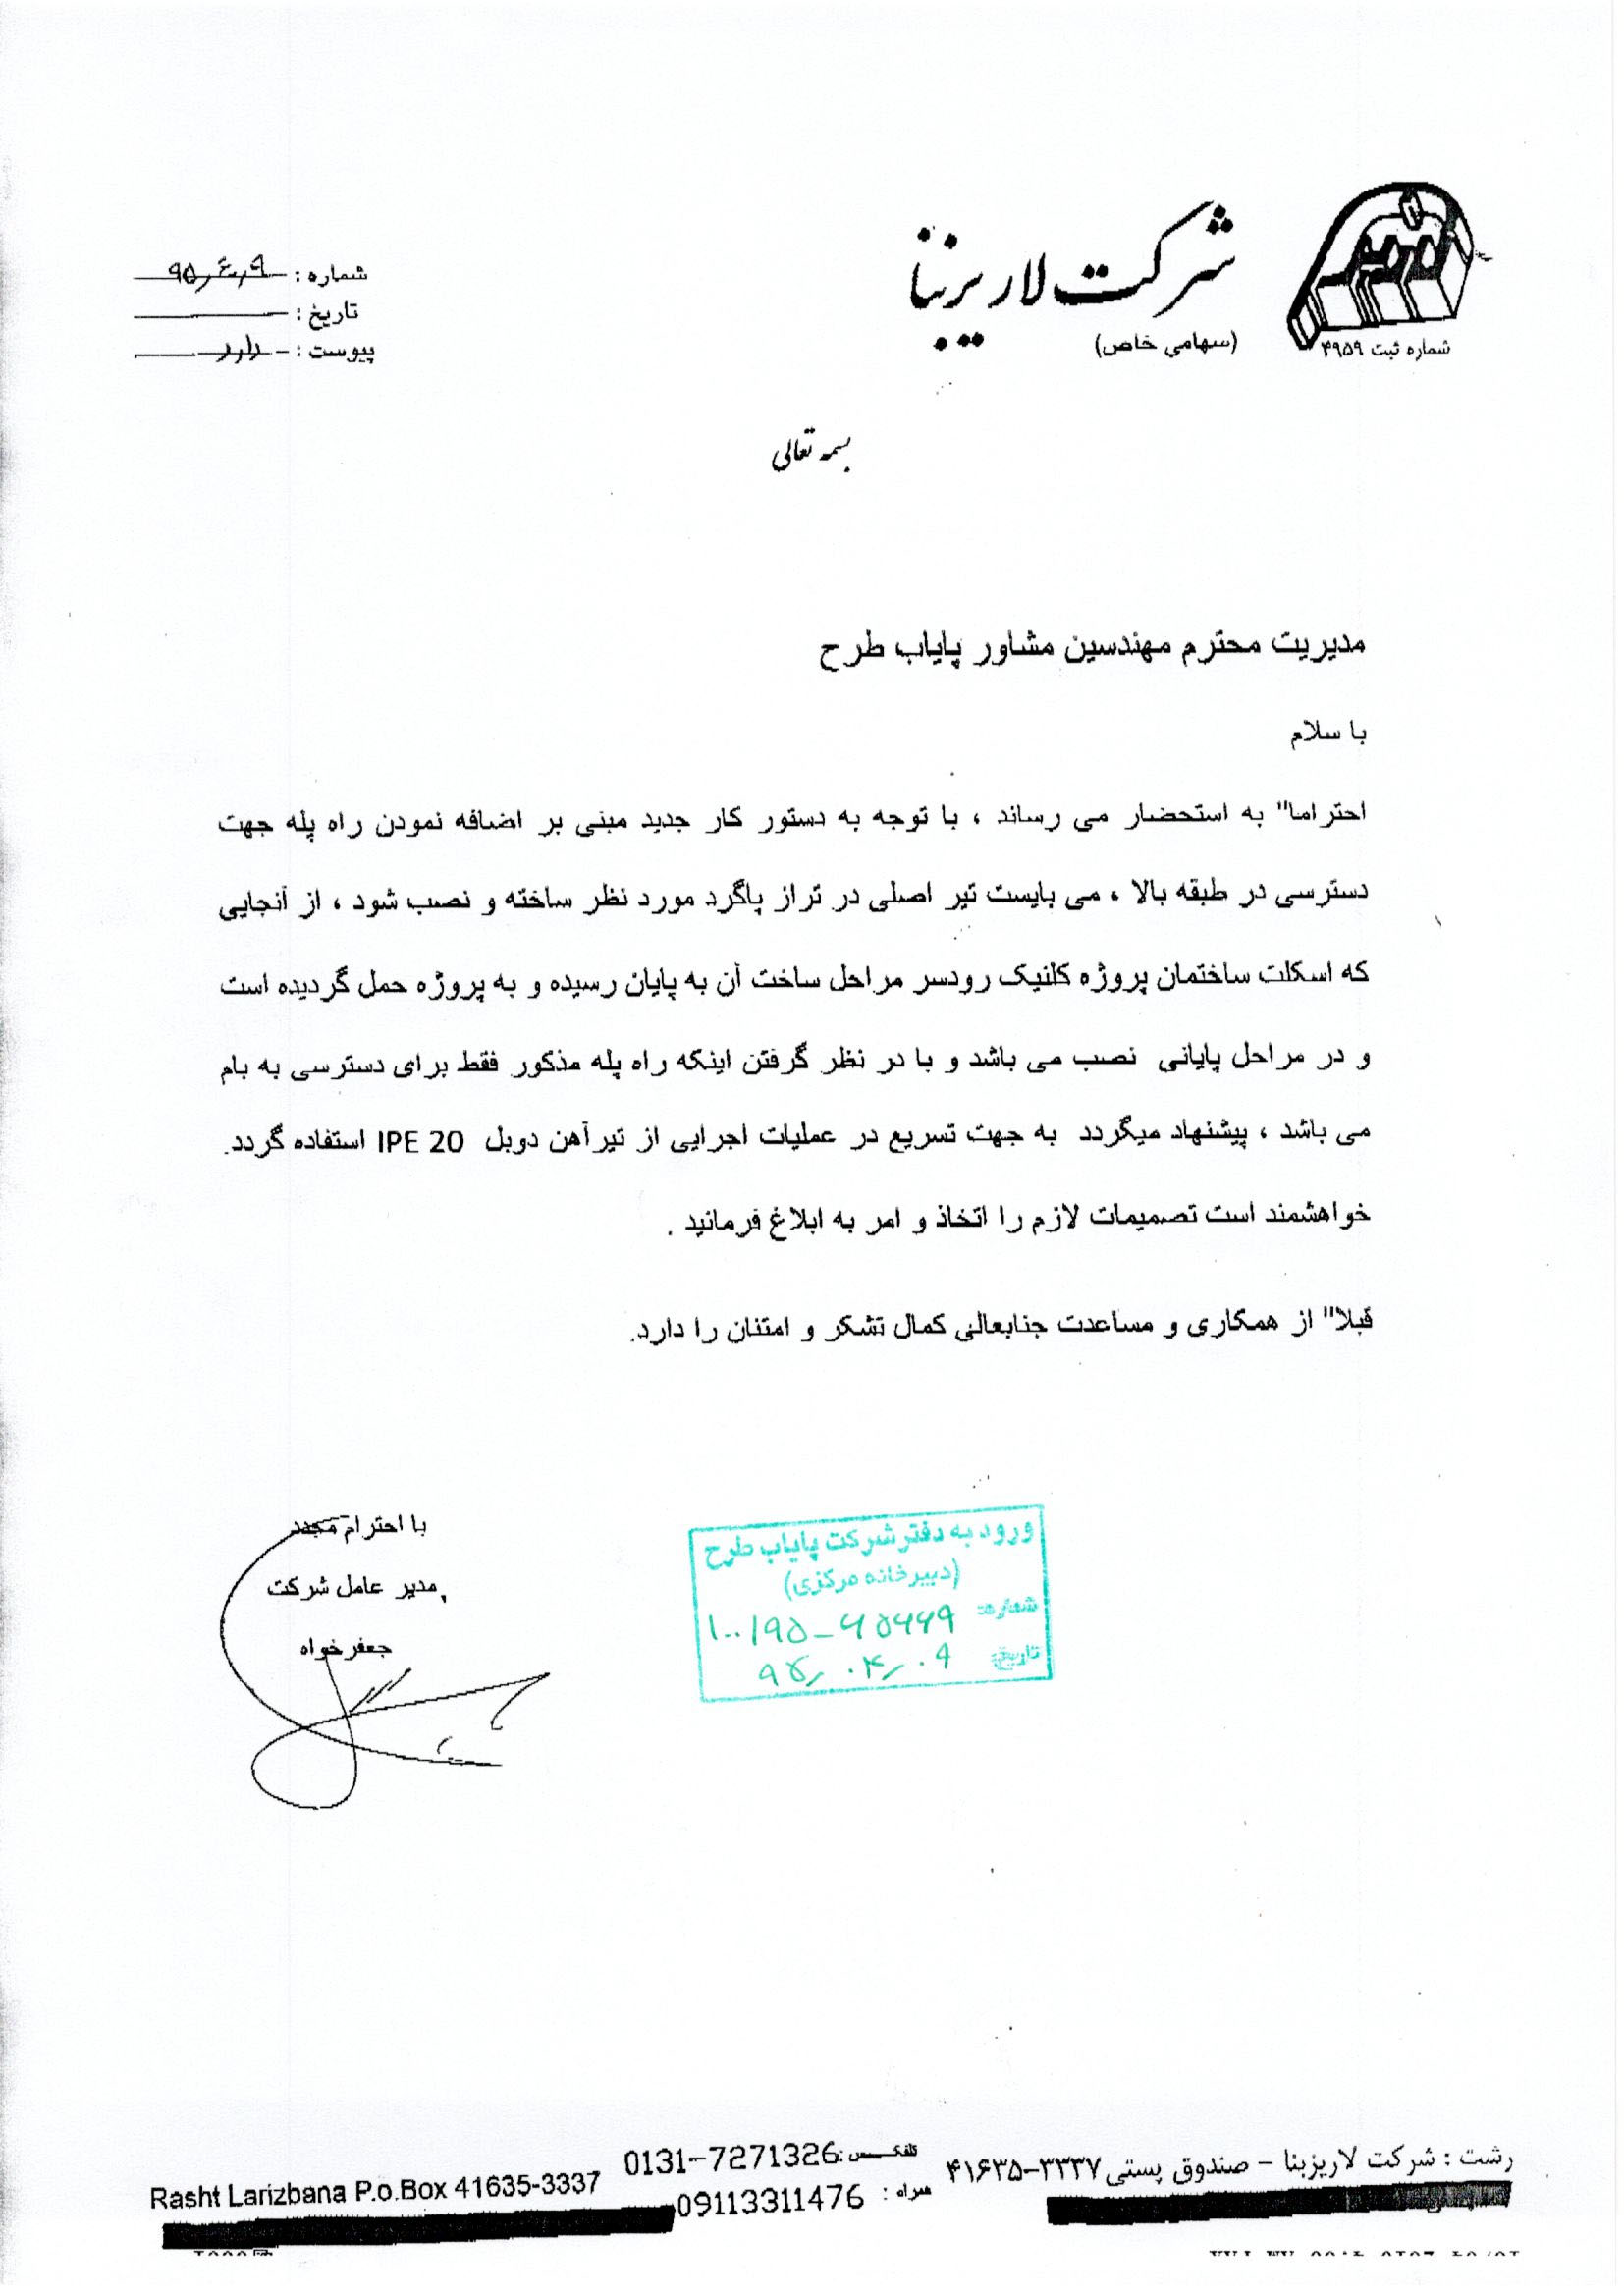 شرکت لاریزبنا
(سهامی خاص)
شماره ثبت ۴۹۵۹
شماره :
تاریخ :
پیوست : - دارد
بسمه تعالی
مدیریت محترم مهندسین مشاور پایاب طرح
با سلام
احتراما" به استحضار می رساند ، با توجه به دستور کار جدید مبنی بر اضافه نمودن راه پله جهت
دسترسی در طبقه بالا ، می بایست تیر اصلی در تراز پاگرد مورد نظر ساخته و نصب شود ، از آنجایی
که اسکلت ساختمان پروژه کلنیک رودسر مراحل ساخت آن به پایان رسیده و به پروژه حمل گردیده است
و در مراحل پایانی نصب می باشد و با در نظر گرفتن اینکه راه پله مذکور فقط برای دسترسی به بام
می باشد ، پیشنهاد میگردد به جهت تسریع در عملیات اجرایی از تیرآهن دوبل IPE 20 استفاده گردد.
خواهشمند است تصمیمات لازم را اتخاذ و امر به ابلاغ فرمانید .
قبلا" از همکاری و مساعدت جنابعالی کمال تشکر و امتنان را دارد.
با احترام مجدد
مدیر عامل شرکت
جعفرخواه
ورود به دفتر شرکت پایاب طرح
(دبیرخانه مرکزی)
شماره:
تاریخ: ۹۵٫۰۴٫۰۹
رشت : شرکت لاریزبنا - صندوق پستی ۳۳۳۷-۴۱۶۳۵
تلفکس: 0131-7271326
همراه : 09113311476
Rasht Larizbana P.o.Box 41635-3337